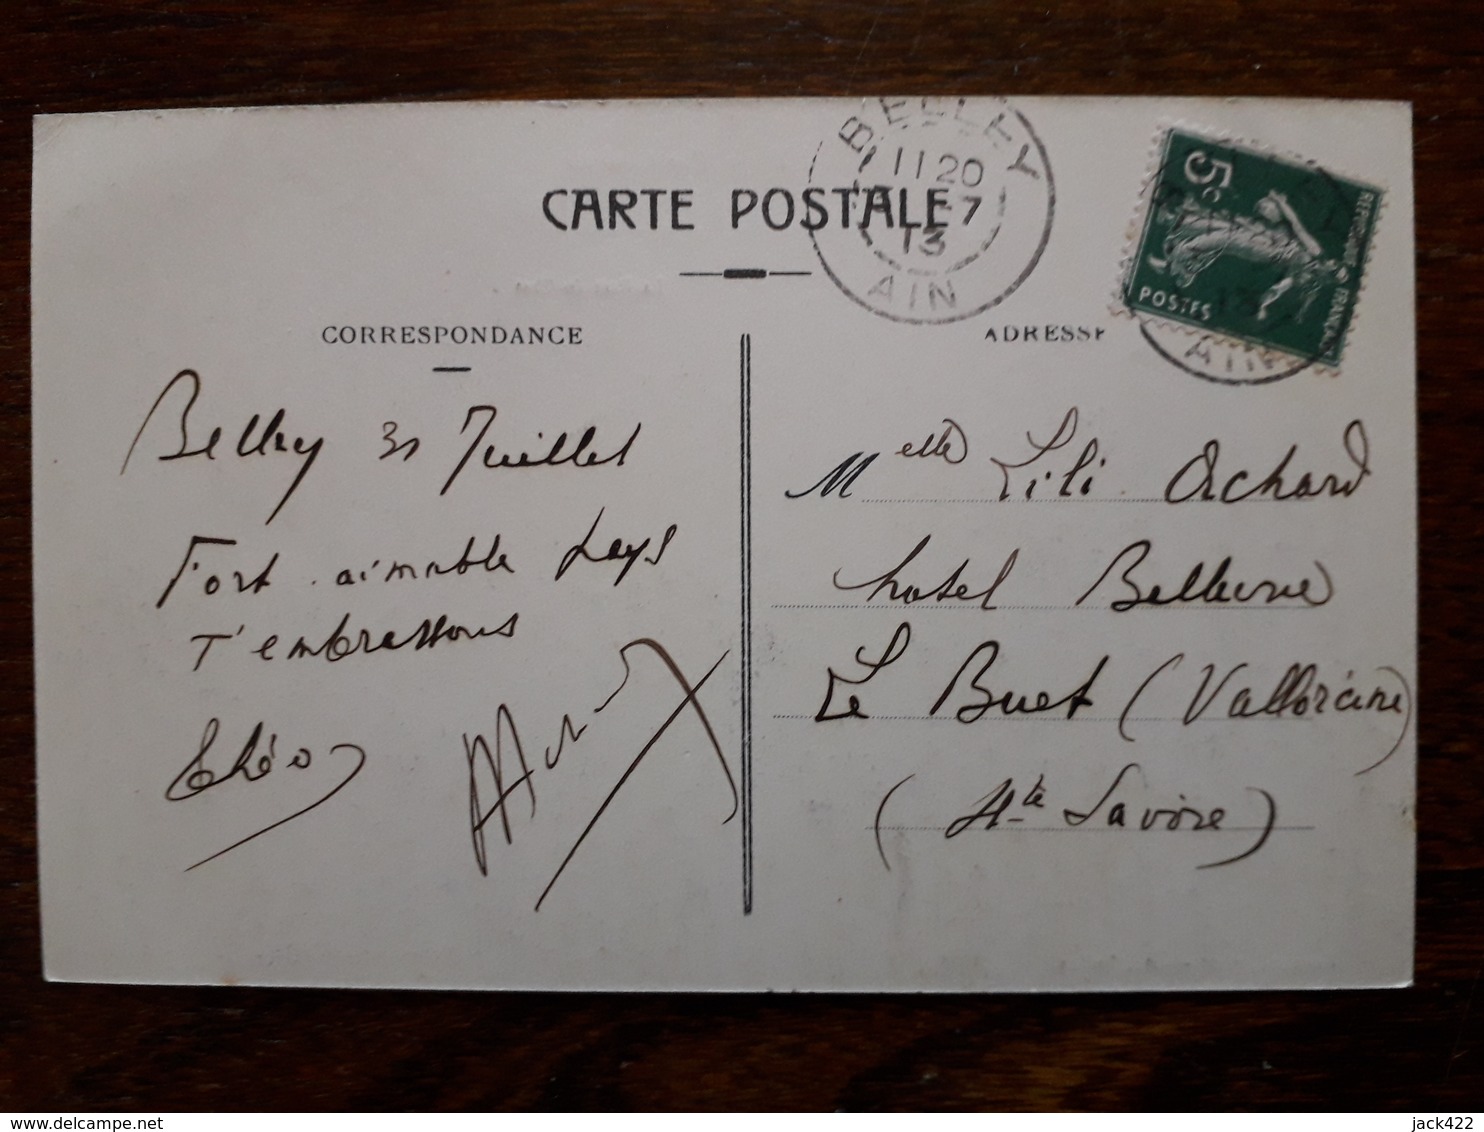 CARTE POSTALE
BELLEY
11 20
7
13
AIN
5c
POSTES
AIN
CORRESPONDANCE
ADRESSE
Belley 31 Juillet
Fort aimable pays
T'embrassons
Théo
Melle Lili Achard
hotel Bellevue
Le Buet (Vallorcine)
(Hte Savoie)
delcampe.net
jack422